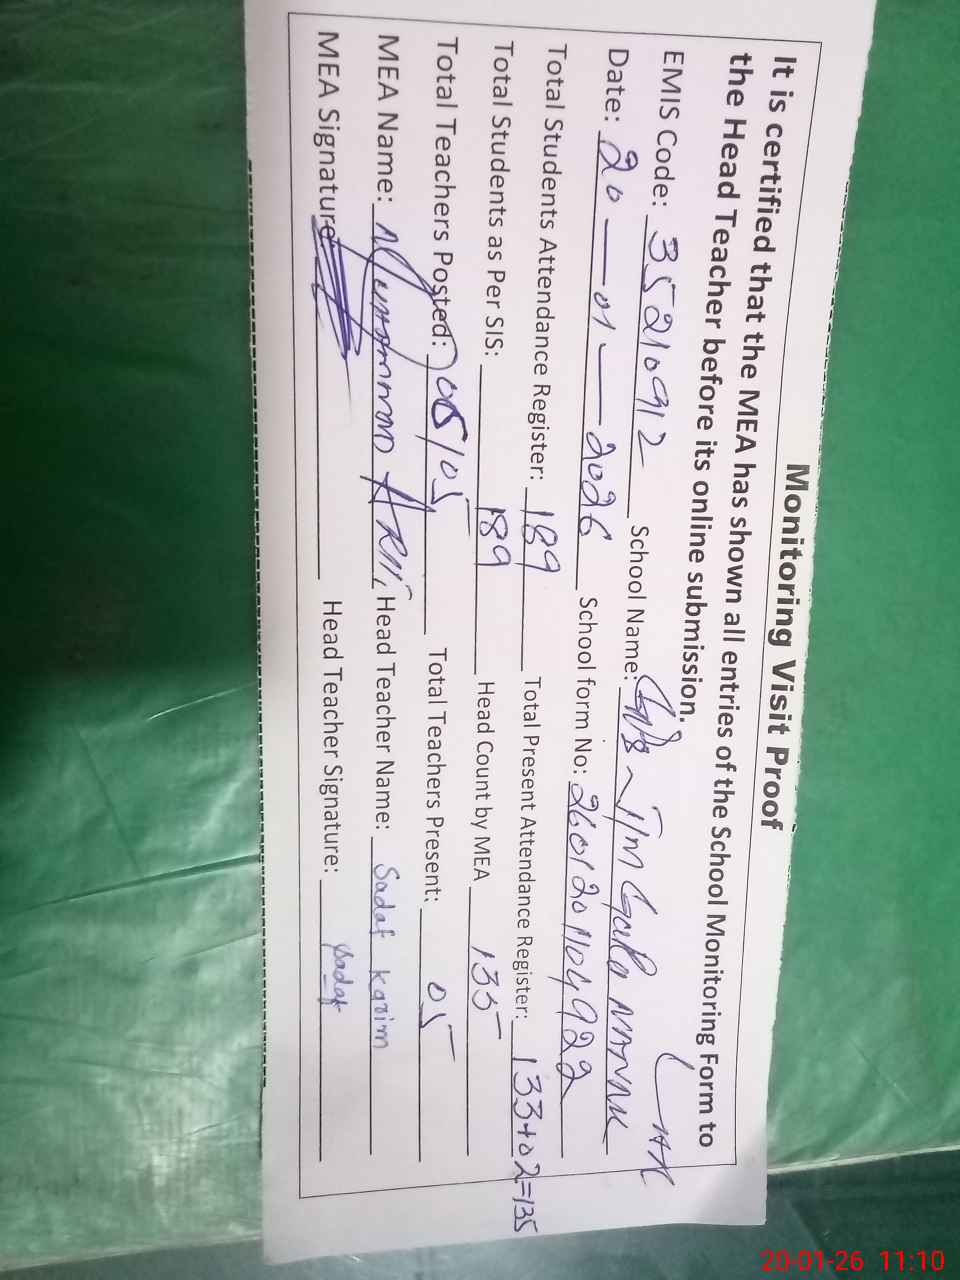 Monitoring Visit Proof
It is certified that the MEA has shown all entries of the School Monitoring Form to
the Head Teacher before its online submission.
EMIS Code: 35210912 School Name:
Date: 20-01-2026 School form No: 2601201104922
Total Students Attendance Register: 189 Total Present Attendance Register: 133+02=135
Total Students as Per SIS: 189 Head Count by MEA 135
Total Teachers Posted: 05/05 Total Teachers Present: 05
MEA Name: Head Teacher Name: Sadaf Karim
MEA Signature Head Teacher Signature: Sadaf
20-01-26 11:10